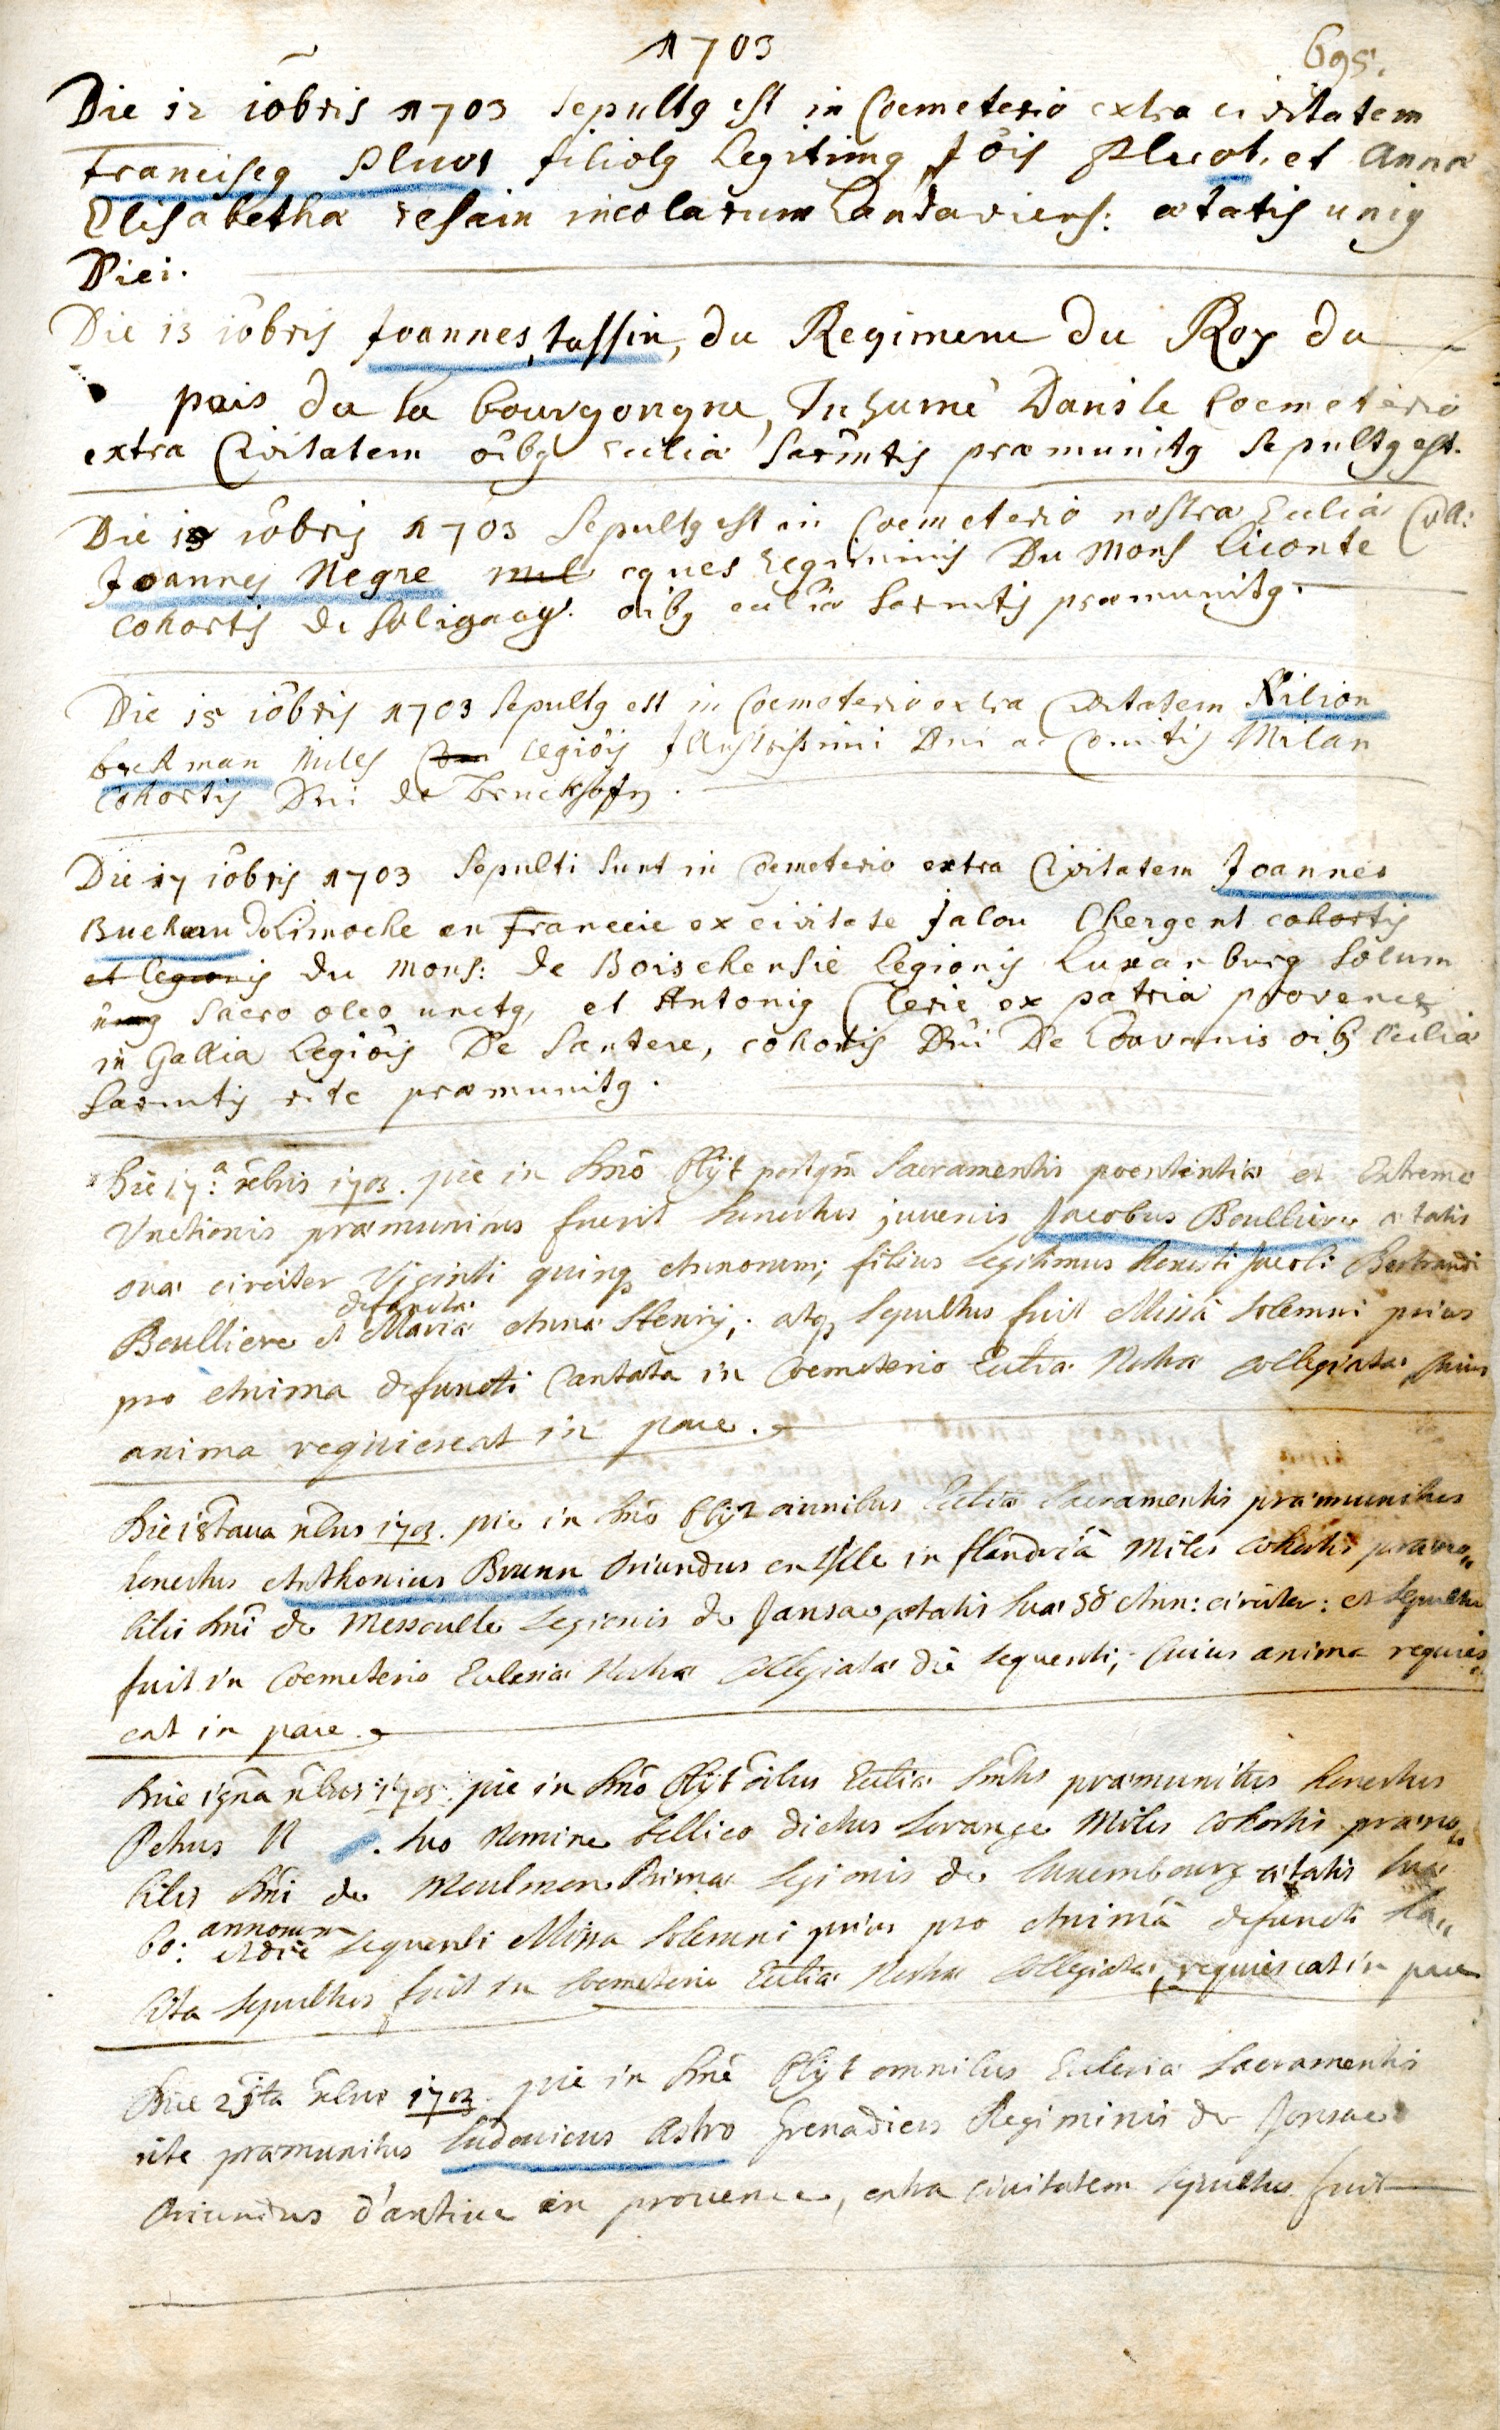 1703
695.
Die 12 iôbris 1703 sepultg est in Coemeterio extra civitatem
Franciscg Pluot filiolg Legitimg Jôis Pluot, et Anna
Elisabetha resain incolarum Landaviens: ætatis unig
Diei.
Die 13 iôbris Joannes tassin, du Regiment du Roy du
païs de la bourgongne, Inhumé Dans le Coemeterio
extra Civitatem oîbg ecclia Sacrmtis præmunitg Sepultg est.
Die 13 iôbris 1703 Sepultg est in Coemeterio nostra Ecclia Coll:
Joannes Negre mil eques Regiminis Du Mons Liconte
cohortis de Soligany. oîbg ecclia Sacrmtis præmunitg.
Die 15 iôbris 1703 Sepultg est in Coemeterio extra Civitatem Kilion
brekman Miles Com legiôis Illustrissimi Dni a Comitis Milan
cohortis Dni de
Die 17 iôbris 1703 Sepulti Sunt in Coemeterio extra Civitatem Joannes
Buchan de Limoche en Franccie ex civitate Jalou Chergent cohortis
et legionis du Mons: de Boischensie legionis Luxanburg Solum
unctg Sacro oleo unctg, et Antonig Clerie ex patria provence
in Gallia Legiôis De Santere, cohortis Dni De Couvonis oîbg Ecclia
Sacrmtis rite præmunitg.
Die 17.a xbris 1703. pie in Dnô Obijt postqm Sacramentis poenitentiæ et Extremæ
Unctionis præmunitus fuerit honestus juvenis Jacobus Boulliere ætatis
suæ circiter Viginti quinqz Annorum; filius Legitimus Honesti Jacobi Bertrandi
Boulliere et defunctæ Mariæ Annæ Henrij; atqz Sepultus fuit Missâ Solemni prius
pro Anima defuncti Cantata in Coemeterio Ecclia Nostræ Collegiatæ, cuius
anima requiescat in pace.
Die 18tava xbris 1703. pie in Dnô Obijt omnibus Ecclia Sacramentis præmunitus
honestus Anthonius Brunn Oriundus en Isle in flandriâ Miles Cohortis præno„
bilis Dni de Messoulle Legionis de Jansac ætatis suæ 58 Ann: circiter: et Sepultus
fuit in Coemeterio Eclesiæ Nostræ Collegiatæ die sequenti; Cuius anima requies„
cat in pace.
Die 19na xbris 1703. pie in Dnô Obijt oîbus Ecclia Smtis præmunitus honestus
Petrus N . suo Nomine bellico dictus Lorange Miles Cohortis præno„
bilis Dni de Moulmon Primæ Legionis de Luxembourg ætatis suæ
60: annorum et die sequenti Missa Solemni prius pro Animâ defuncti ha„
bita Sepultus fuit in Coemeterio Ecclia Nostræ Collegiatæ, requiescat in pace
Die 21ta xbris 1703. pie in Dnô Obijt omnibus Ecclesiæ Sacramentis
rite præmunitus Ludovicus Astro Grenadiers Regiminis de Jonsac
Oriundus d'antive en provence, extra Civitatem Sepultus fuit